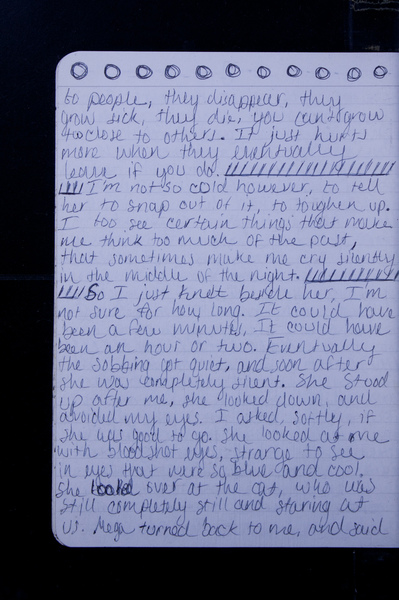 to people, they disappear, they
grow sick, they die, you can't grow
too close to others. It just hurts
more when they eventually
leave if you do.
I'm not so cold however, to tell
her to snap out of it, to toughen up.
I too see certain things that make
me think too much of the past,
that sometimes make me cry silently
in the middle of the night.
So I just knelt beside her, I'm
not sure for how long. It could have
been a few minutes, It could have
been an hour or two. Eventually
the sobbing got quiet, and soon after
she was completely silent. She stood
up after me, she looked down, and
avoided my eyes. I asked, softly, if
she was good to go. She looked at me
with bloodshot eyes, strange to see
in eyes that were so blue and cool.
She looked over at the cat, who was
still completely still and staring at
us. Mega turned back to me, and said